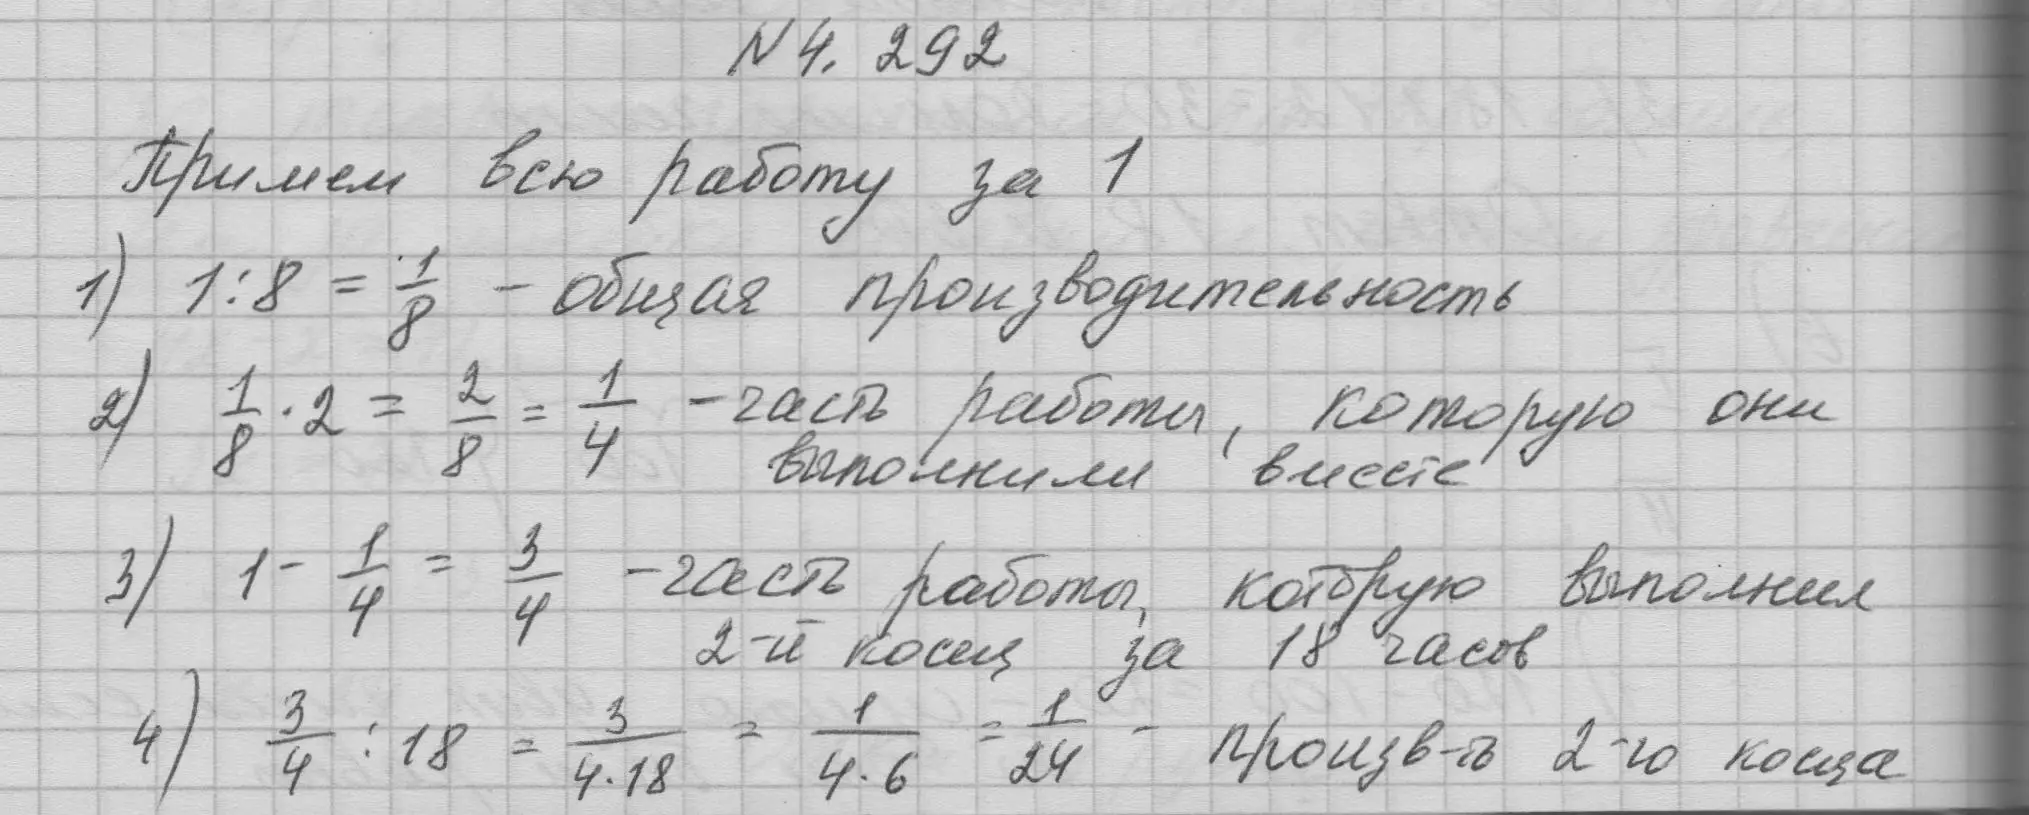 N 4. 292
Примем всю работу за 1
1) 1 : 8 = 1/8 - общая производительность
2) 1/8 · 2 = 2/8 = 1/4 - часть работы, которую они
выполнили вместе
3) 1 - 1/4 = 3/4 - часть работы, которую выполнил
2-й косец за 18 часов
4) 3/4 : 18 = 3/(4·18) = 1/(4·6) = 1/24 - произв-ть 2-го косца